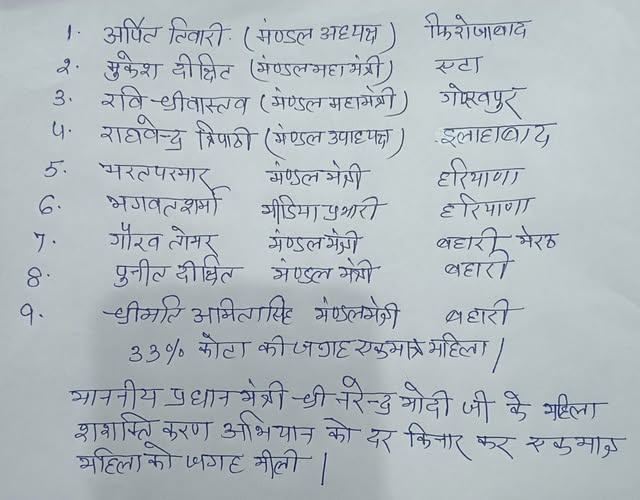 1. अर्पित तिवारी. (मंण्डल अध्यक्ष) फिरोजाबाद
२. मुकेश दीक्षित (मंण्डल महा मंत्री) एटा
3. रवि श्रीवास्तव (मंण्डल महामंत्री) गोरखपुर
4. राघवेन्द्र त्रिपाठी (मंण्डल उपाध्यक्ष) इलाहाबाद
5. भरतपरमार मंण्डल मंत्री हरियाणा
6. भगवतशर्मा मीडिया प्रभारी हरियाणा
7. गौरव तोमर मंण्डलमंत्री बहारी मेरठ
8. पुनीत दीक्षित मंण्डल मंत्री बहारी
9. श्रीमति अमितासिंह मंण्डलमंत्री बहारी
33% कोटा की जगह एकमात्र महिला |
माननीय प्रधान मंत्री श्री नरेन्द्र मोदी जी के महिला
शशक्ति करण अभियान को दर किनार कर एकमात्र
महिला को जगह मीली |